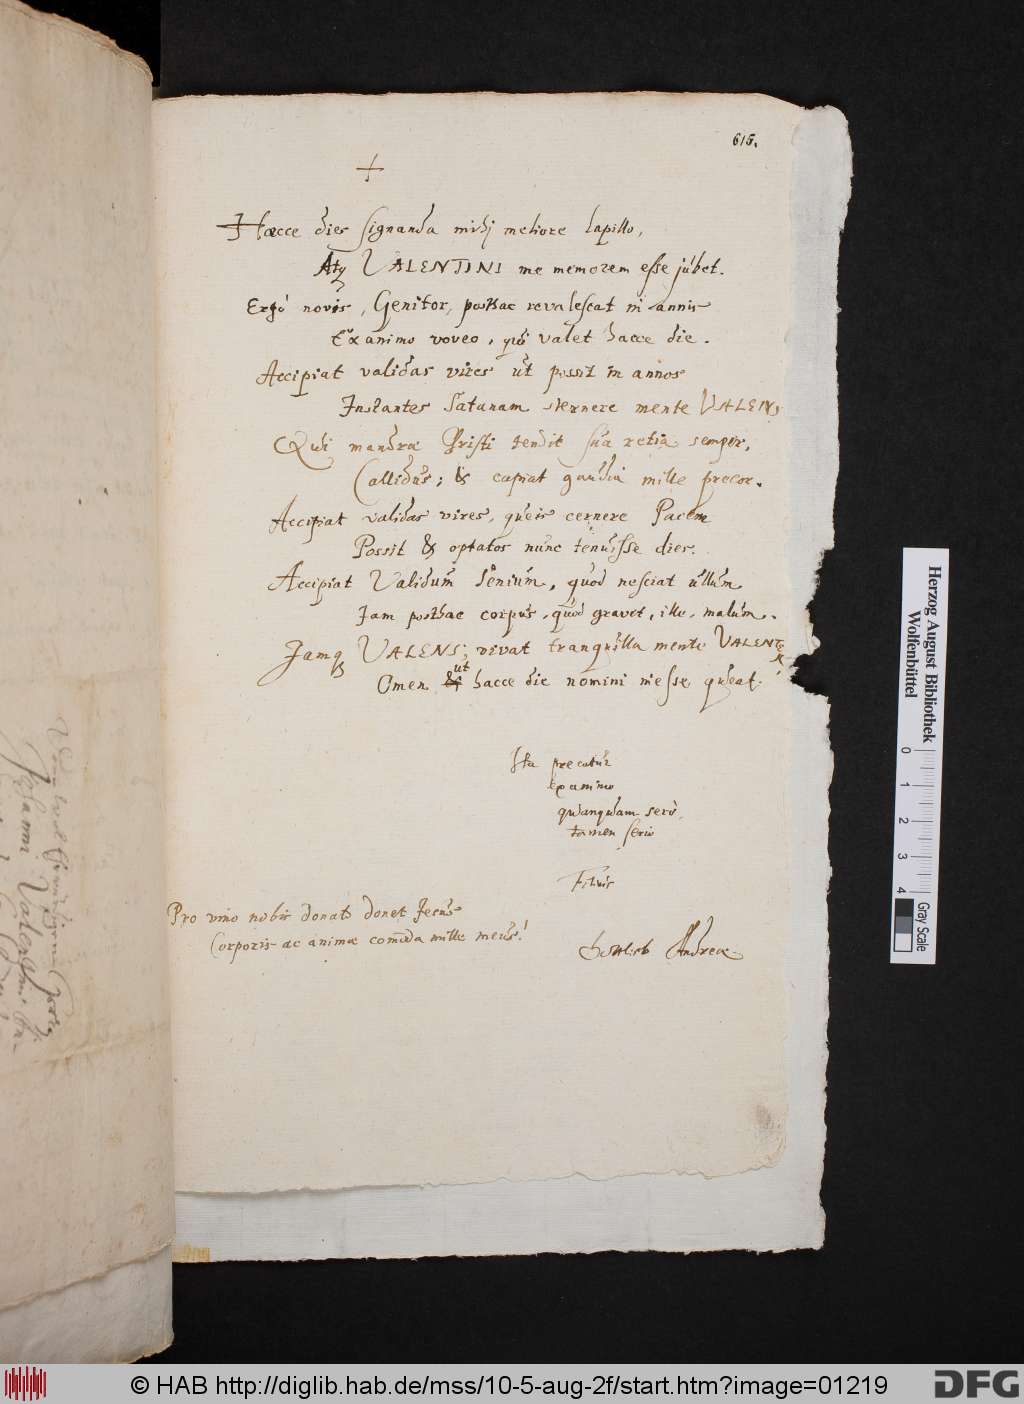 615.
+
Haecce dies signanda mihj meliore lapillo,
Atq VALENTINI me memorem esse jubet.
Ergò novis, Genitor, posthac revalescat in annis
Ex animo voveo, qui valet hacce die.
Accipiat validas vires ut possit in annos
Instantes Satanam sternere mente VALENS
Qui mandrae Christi tendit sua retia semper,
Callidus; & capiat gaudia mille precor.
Accipiat validas vires, queis cernere Pacem
Possit & optatos nunc tenuisse dies.
Accipiat Validum senium, quod nesciat ullum
Iam posthac corpus, quod gravet, ille, malum.
Jamq VALENS; vivat tranquilla mente VALENT
Omen ut hacce die nomini inesse queat.
Ita precatur
ex animo
quanquam serò,
tamen seriò
Filius
Gottlieb Andreae
Pro vino nobis donato donet Jesus
Corporis ac animae comoda mille meus!
Herzog August Bibliothek
Wolfenbüttel
0 1 2 3 4
Gray Scale
© HAB http://diglib.hab.de/mss/10-5-aug-2f/start.htm?image=01219
DFG